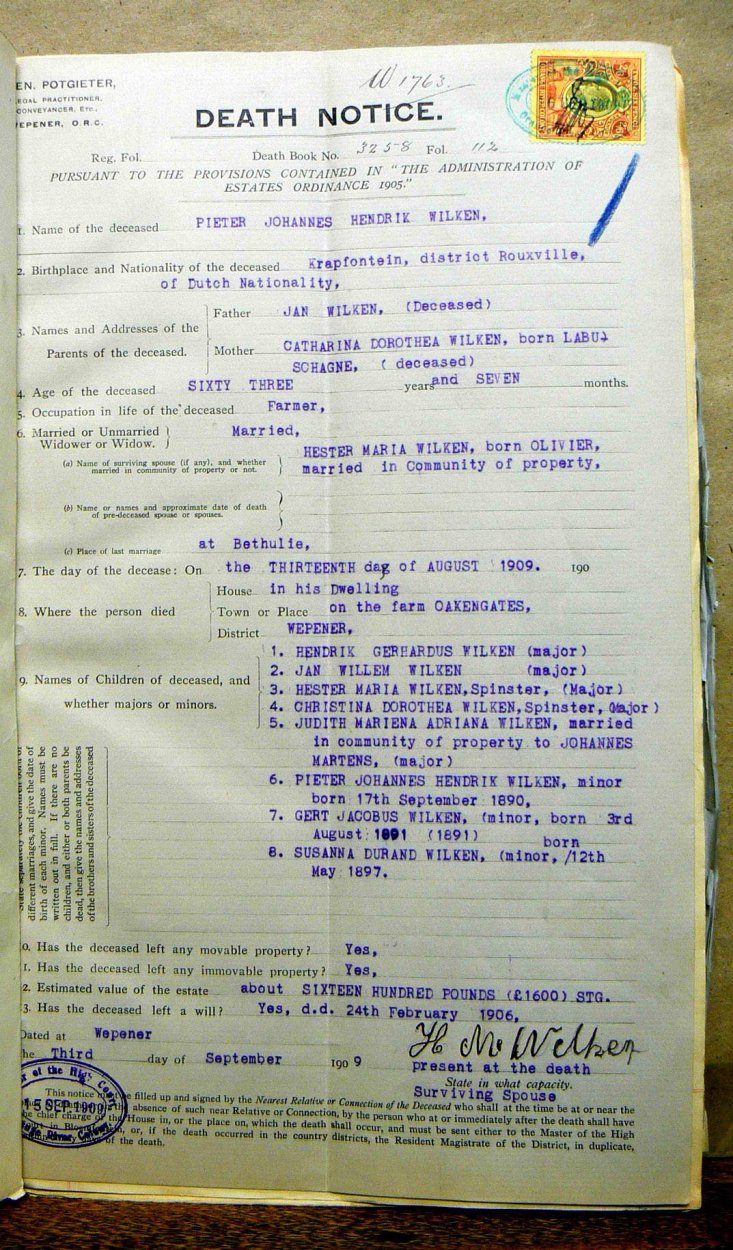 EN. POTGIETER,
EGAL PRACTITIONER,
CONVEYANCER, ETC.,
WEPENER, O.R.C.
W 1763.
DEATH NOTICE.
Reg. Fol. Death Book No. 3258 Fol. 112
PURSUANT TO THE PROVISIONS CONTAINED IN "THE ADMINISTRATION OF
ESTATES ORDINANCE 1905."
1. Name of the deceased PIETER JOHANNES HENDRIK WILKEN,
2. Birthplace and Nationality of the deceased Krapfontein, district Rouxville,
of Dutch Nationality,
3. Names and Addresses of the Parents of the deceased.
Father JAN WILKEN, (Deceased)
Mother CATHARINA DOROTHEA WILKEN, born LABU-
SCHAGNE, ( deceased)
4. Age of the deceased SIXTY THREE years and SEVEN months.
5. Occupation in life of the deceased Farmer,
6. Married or Unmarried Married,
Widower or Widow.
HESTER MARIA WILKEN, born OLIVIER,
(a) Name of surviving spouse (if any), and whether
married in community of property or not.
married in Community of property,
(b) Name or names and approximate date of death
of pre-deceased spouse or spouses.
(c) Place of last marriage at Bethulie,
7. The day of the decease: On the THIRTEENTH day of AUGUST 1909. 190
8. Where the person died
House in his Dwelling
Town or Place on the farm OAKENGATES,
District WEPENER,
9. Names of Children of deceased, and
whether majors or minors.
1. HENDRIK GERHARDUS WILKEN (major)
2. JAN WILLEM WILKEN (major)
3. HESTER MARIA WILKEN,Spinster, (Major)
4. CHRISTINA DOROTHEA WILKEN,Spinster, (Major)
5. JUDITH MARIENA ADRIANA WILKEN, married
in community of property to JOHANNES
MARTENS, (major)
6. PIETER JOHANNES HENDRIK WILKEN, minor
born 17th September 1890,
7. GERT JACOBUS WILKEN, (minor, born 3rd
August 1891 (1891)
born
8. SUSANNA DURAND WILKEN, (minor, /12th
May 1897.
different marriages, and give the date of
birth of each minor. Names must be
written out in full. If there are no
children, and either or both parents be
dead, then give the names and addresses
of the brothers and sisters of the deceased
0. Has the deceased left any movable property? Yes,
1. Has the deceased left any immovable property? Yes,
2. Estimated value of the estate about SIXTEEN HUNDRED POUNDS (£1600) STG.
3. Has the deceased left a will? Yes, d.d. 24th February 1906,
Dated at Wepener
H M Wilken
he Third day of September 190 9
present at the death
State in what capacity.
Surviving Spouse
15 SEP 1909
This notice must be filled up and signed by the Nearest Relative or Connection of the Deceased who shall at the time be at or near the
absence of such near Relative or Connection, by the person who at or immediately after the death shall have
the chief charge of the House in, or the place on, which the death shall occur, and must be sent either to the Master of the High
or, if the death occurred in the country districts, the Resident Magistrate of the District, in duplicate,
of the death.